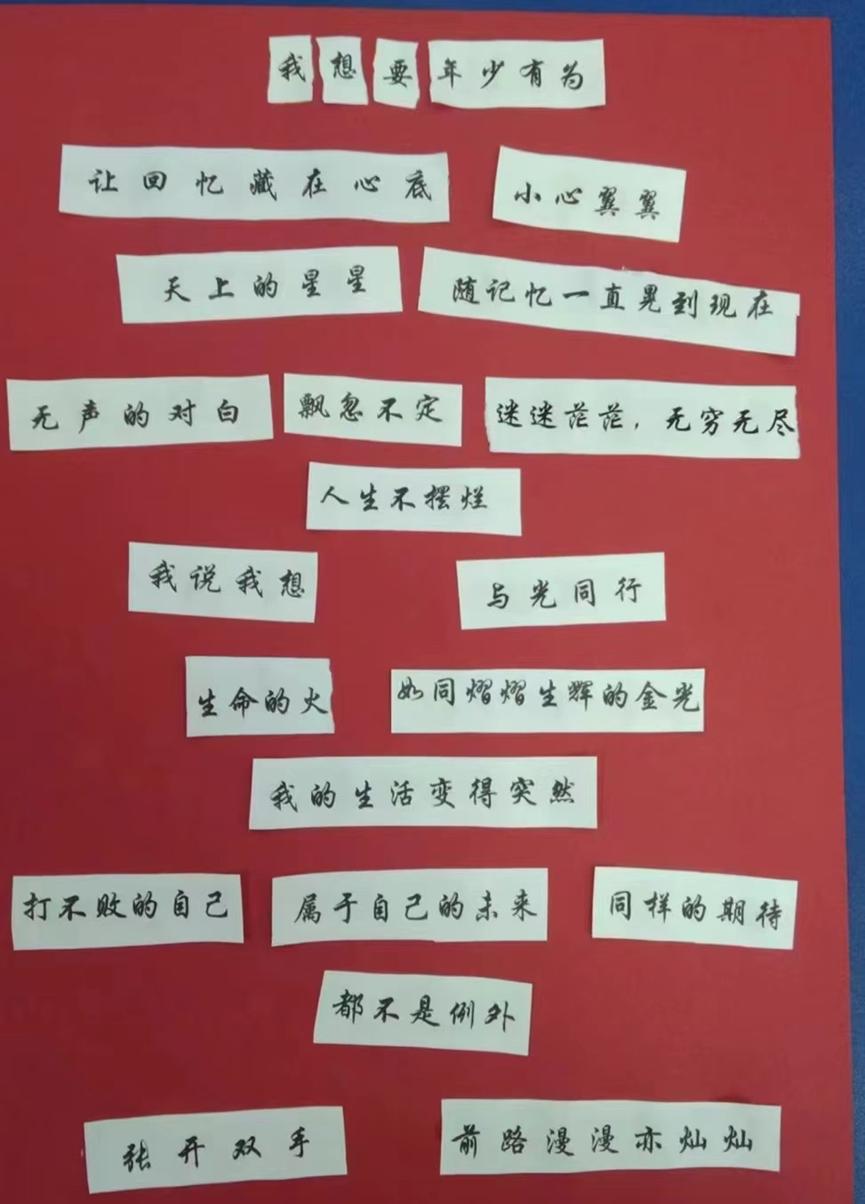 我想要年少有为
让回忆藏在心底 小心翼翼
天上的星星 随记忆一直晃到现在
无声的对白 飘忽不定 迷迷茫茫，无穷无尽
人生不摆烂
我说我想 与光同行
生命的火 如同熠熠生辉的金光
我的生活变得突然
打不败的自己 属于自己的未来 同样的期待
都不是例外
张开双手 前路漫漫亦灿灿